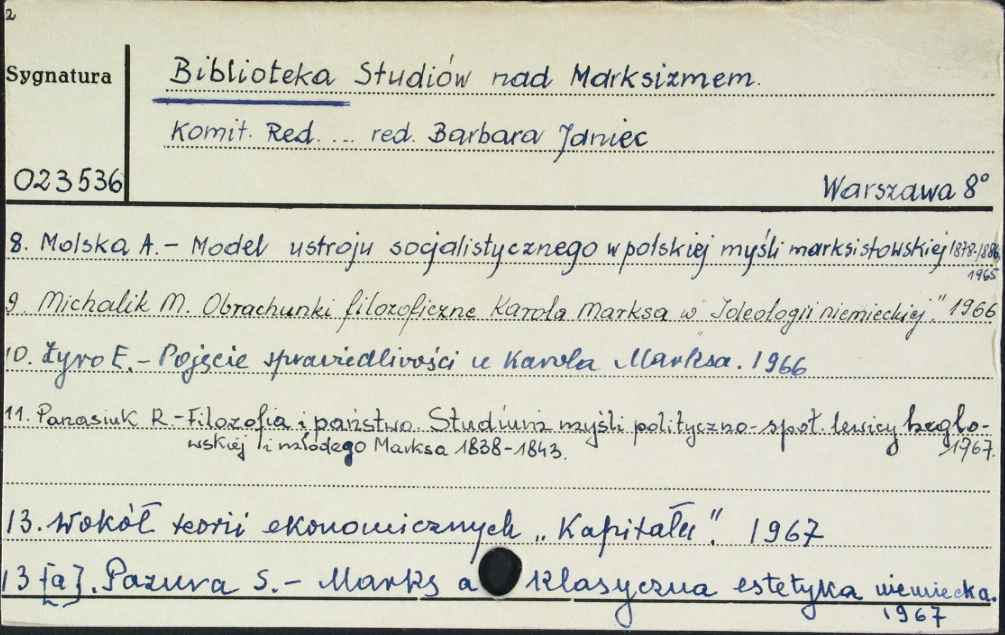 2
Sygnatura
Biblioteka Studiów nad Marksizmem.
Komit. Red. ... red. Barbara Janiec
023536
Warszawa 8°
8. Molska A. - Model ustroju socjalistycznego w polskiej myśli marksistowskiej 1878-1886
1965
9. Michalik M. Obrachunki filozoficzne Karola Marksa w "Ideologii niemieckiej." 1966
10. Żyro E. - Pojęcie sprawiedliwości u Karola Marksa. 1966
11. Panasiuk R - Filozofia i państwo. Studium myśli polityczno-społ. lewicy heglo-
wskiej i młodego Marksa 1838-1843.
1967.
13. Wokół teorii ekonomicznych „Kapitału". 1967
13 [a]. Pazura S. - Marks a klasyczna estetyka niemiecka.
1967